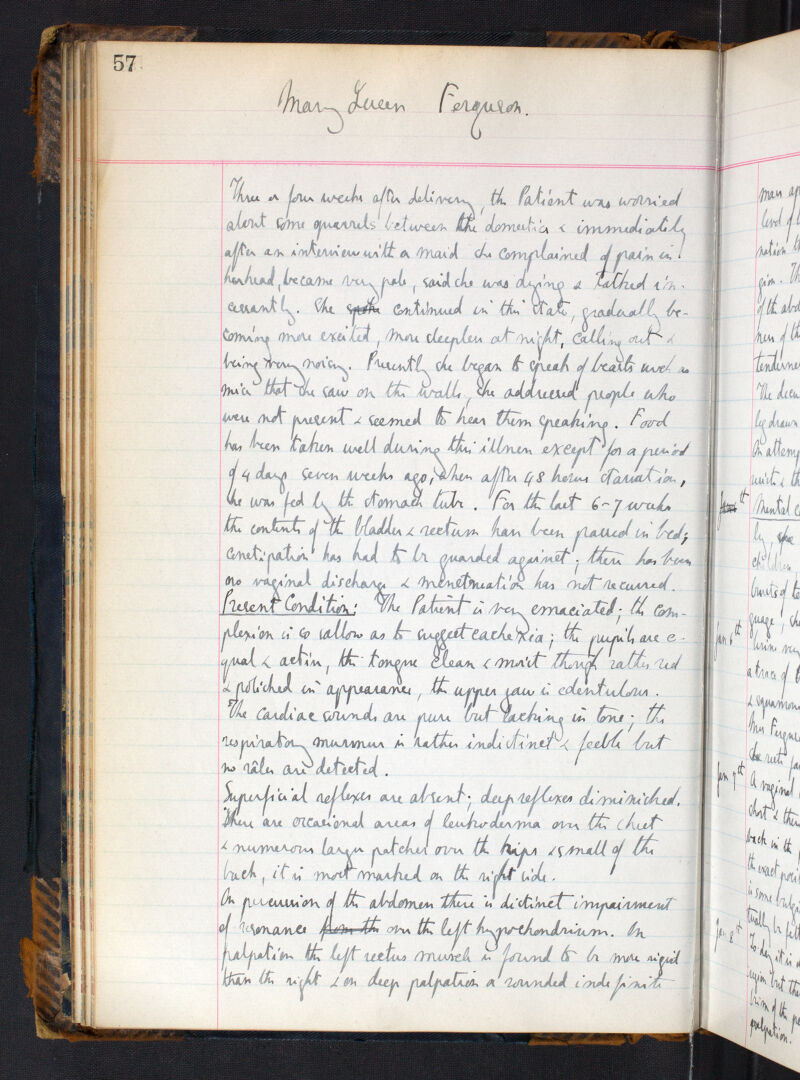 57
Mary Queen Ferguson.
Three or four weeks after delivery, the Patient was worried
about some quarrels between the domestics & immediately
after an interview with a maid she complained of pain in
forehead, became very pale, said she was dying & talked in-
cessantly. She spoke continued in this state, gradually be-
coming more excited, more sleepless at night, calling out &
being very noisy. Presently she began to speak of beasts such as
mice that she saw on the walls, she addressed people who
were not present & seemed to hear them speaking. Food
has been taken well during this illness except for a period
of 4 days seven weeks ago, when after 48 hours starvation,
she was fed by the stomach tube. For the last 6-7 weeks
the contents of the bladder & rectum have been passed in bed;
constipation has had to be guarded against; there has been
no vaginal discharge & menstruation has not recurred.
Present Condition: The Patient is very emaciated; the com-
plexion is so sallow as to suggest cachexia; the pupils are e-
qual & active, the tongue clean & moist though rather red
& polished in appearance, the upper jaw is edentulous.
The cardiac sounds are pure but lacking in tone; the
respiratory murmur is rather indistinct & feeble but
no râles are detected.
Superficial reflexes are absent; deep reflexes diminished.
There are occasional areas of leukoderma over the chest
& numerous large patches over the hips & small of the
back, it is most marked on the right side.
On percussion of the abdomen there is distinct impairment
of resonance from the over the left hypochondrium. On
palpation the left rectus muscle is found to be more rigid
than the right & on deep palpation a rounded indefinite
mass
level of
nation
of the abd
ness of the
tenderness
The
leg drawn
On attempt
with & th
Mental
by
children,
bursts of
guage, she
Jan 6th
urine very
a trace of
& squamous
Mrs Fergus
She rests
Jan 7th
A vaginal
short & then
back in the
the exact posi
is some
Jan 8th
To day it is
brim of the pe
palpation.